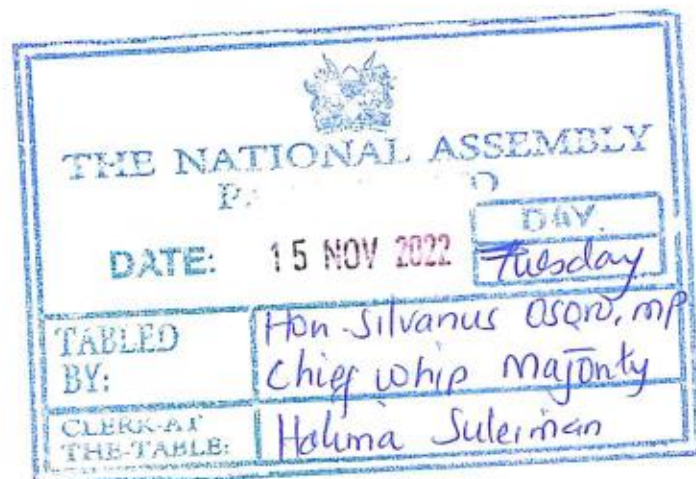 THE NATIONAL ASSEMBLY
DATE: 15 NOV 2022
DAY.
Tuesday
TABLED
BY:
Hon. Silvanus Osoro, MP
Chief Whip Majority
CLERK-AT
THE-TABLE:
Halima Suleiman